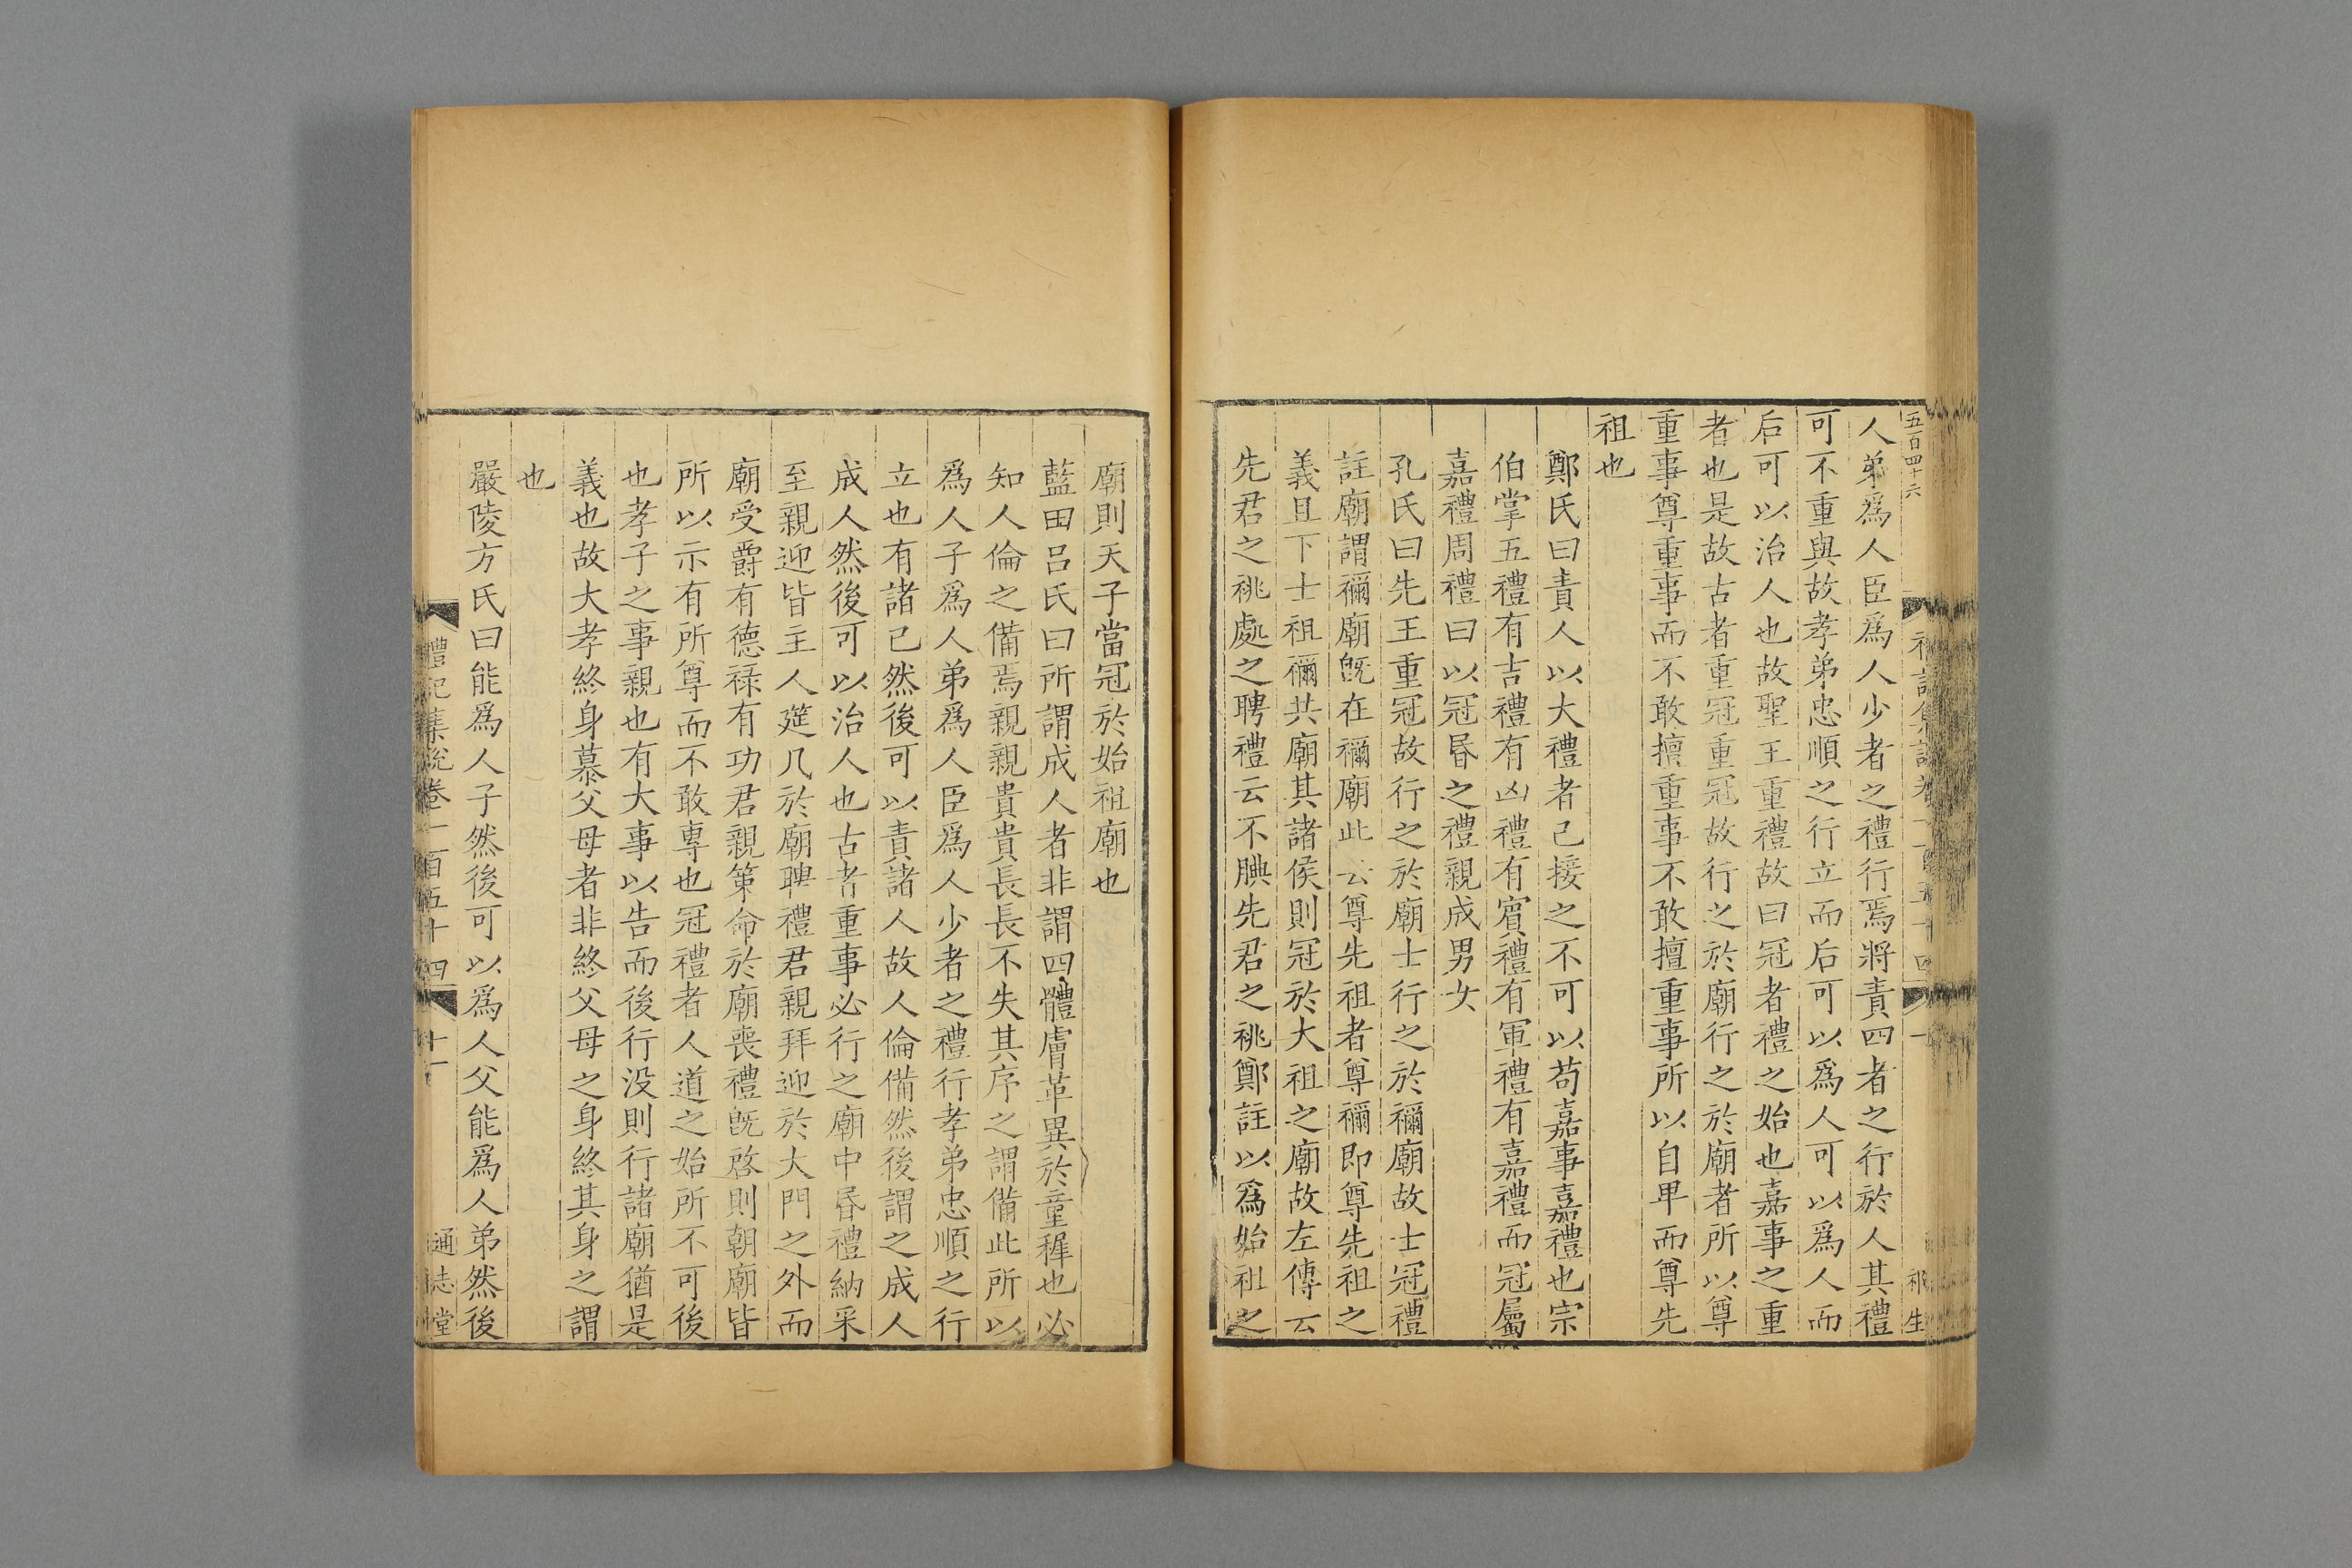 五百四十六
祁生
人弟爲人臣爲人少者之禮行焉將責四者之行於人其禮
可不重與故孝弟忠順之行立而后可以爲人可以爲人而
后可以治人也故聖王重禮故曰冠者禮之始也嘉事之重
者也是故古者重冠重冠故行之於廟行之於廟者所以尊
重事尊重事而不敢擅重事不敢擅重事所以自卑而尊先
祖也
鄭氏曰責人以大禮者己接之不可以苟嘉事嘉禮也宗
伯掌五禮有吉禮有凶禮有賓禮有軍禮有嘉禮而冠屬
嘉禮周禮曰以冠昏之禮親成男女
孔氏曰先王重冠故行之於廟士行之於禰廟故士冠禮
註廟謂禰廟旣在禰廟此云尊先祖者尊禰即尊先祖之
義且下士祖禰共廟其諸侯則冠於大祖之廟故左傳云
先君之祧處之聘禮云不腆先君之祧鄭註以爲始祖之
廟則天子當冠於始祖廟也
藍田呂氏曰所謂成人者非謂四體膚革異於童穉也必
知人倫之備焉親親貴貴長長不失其序之謂備此所以
爲人子爲人弟爲人臣爲人少者之禮行孝弟忠順之行
立也有諸己然後可以責諸人故人倫備然後謂之成人
成人然後可以治人也古者重事必行之廟中昏禮納采
至親迎皆主人筵几於廟聘禮君親拜迎於大門之外而
廟受爵有德祿有功君親策命於廟喪禮旣啓則朝廟皆
所以示有所尊而不敢專也冠禮者人道之始所不可後
也孝子之事親也有大事以告而後行没則行諸廟猶是
義也故大孝終身慕父母者非終父母之身終其身之謂
也
嚴陵方氏曰能爲人子然後可以爲人父能爲人弟然後
禮記集說卷一百五十四
十一
通志堂